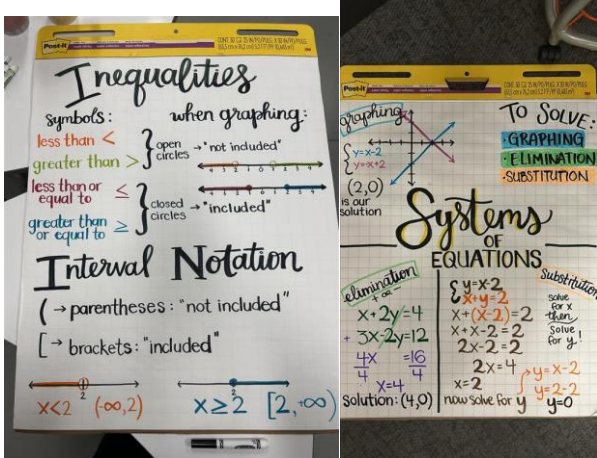 Post-it
Inequalities
Symbols:
less than <
greater than >
open circles → "not included"
less than or equal to ≤
greater than or equal to ≥
closed circles → "included"
when graphing:
Interval Notation
( → parentheses: "not included"
[ → brackets: "included"
2
x<2 (-∞,2)
2
x≥2 [2,+∞)
Post-it
graphing
y=x-2
y=-x+2
(2,0)
is our
solution
TO SOLVE:
·GRAPHING
·ELIMINATION
·SUBSTITUTION
Systems
OF
EQUATIONS
elimination
+ or -
x+2y=4
+ 3x-2y=12
4x =16
4 4
x=4
solution: (4,0)
Substitution
y=x-2
x+y=2
x+(x-2)=2
x+x-2=2
2x-2=2
2x=4
x=2
now solve for y
solve
for x
then
solve
for y!
y=x-2
y=2-2
y=0